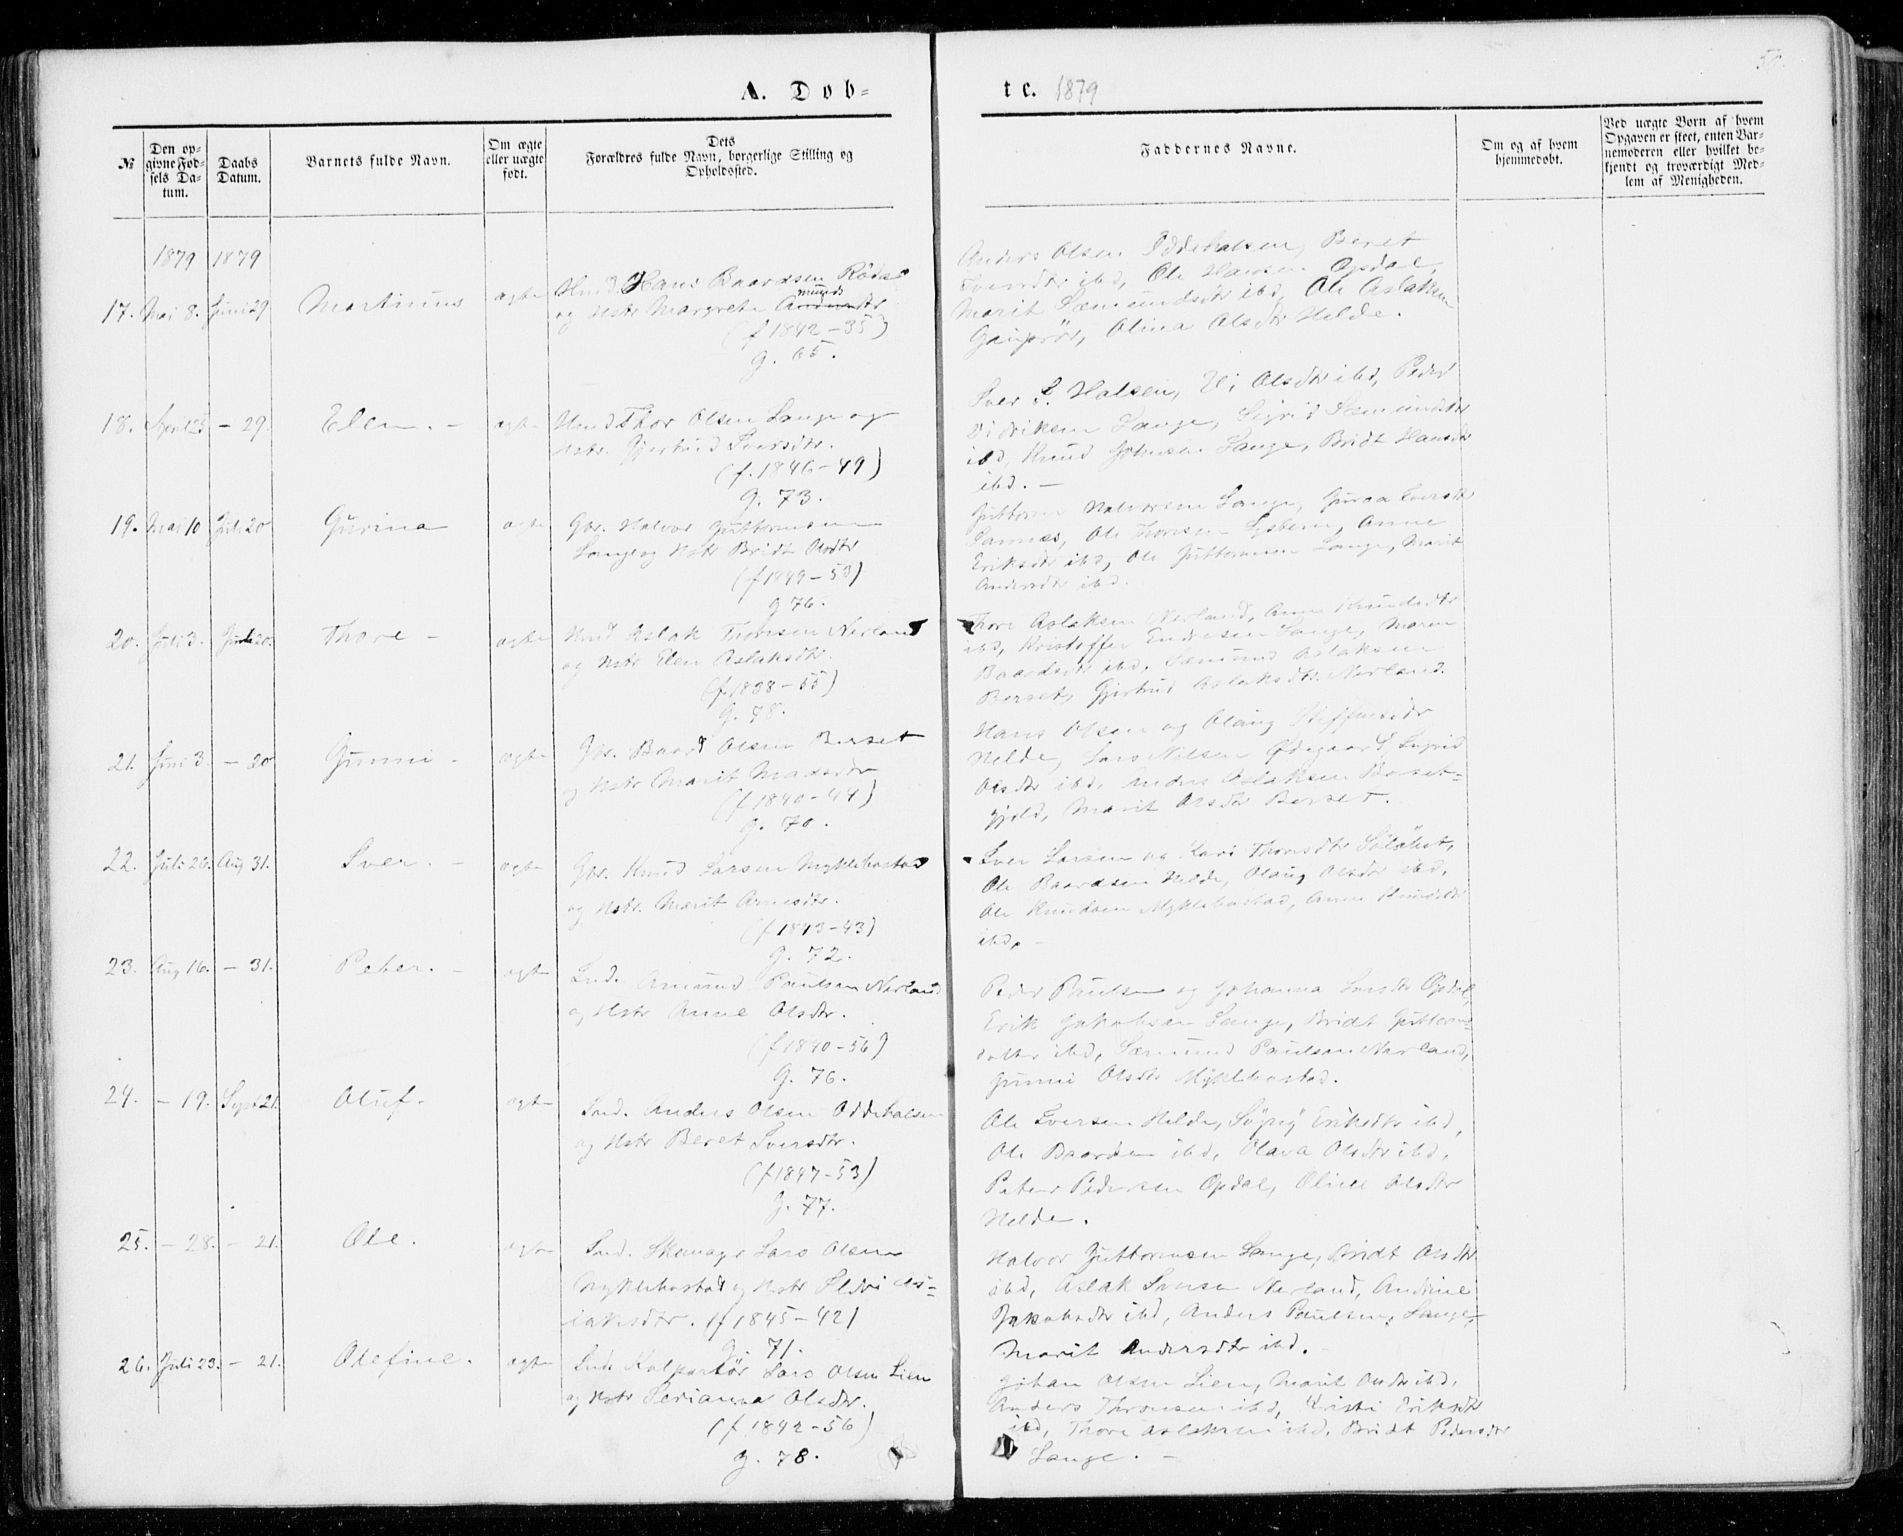 50.
A. Døb-
te. 1879
№
Den op-
givne Fød-
sels Da-
tum.
Daabs
Datum.
Barnets fulde Navn.
Om ægte
eller uægte
født.
Dets
Forældres fulde Navn, borgerlige Stilling og
Opholdssted.
Faddernes Navne.
Om og af hvem
hjemmedøbt.
Ved uægte Børn af hvem
Opgaven er skeet, enten Bar-
nemoderen eller hvilket be-
kjendt og troværdigt Med-
lem af Menigheden.
1879 1879
17. Mai 8. Juni 29 Martinus ægte Hmd Hans Baardsen Rød
og Hstr Margrete mundsdtr
(f 1842-35)
g. 65.
Anders Olsen Oddehalsen, Beret
Iversdtr ibd, Ole Hansen Opdal,
Marit Sæmundsdtr ibd, Ole Aslaksen
Olina Olsdtr Helde.
18. April 23 - 29. Elen. - ægte Hmd Thor Olsen Lange og
Hstr. Gjertrud Iversdtr.
(f. 1846-49)
g. 73.
Iver S. Halsen, Olsdtr ibd, Peder
Lange, Sigrid Sæmundsdtr
ibd, Knud Johnsen Lange, Bridt Hansdtr
ibd. -
19. Mai 10 Juli 20 Gurina ægte Gbr. Halvor Guttormsen
Lange og Hstr Bridt Olsdtr
(f 1849-53)
g 76.
Guttorm Halvorsen Lange, Guroa Iversdtr
Sannes, Ole Thorsen Anne
Eriksdtr ibd, Ole Guttormsen Lange, Marit
Andersdtr ibd.
20. Juli 20. Thore - ægte Hmd Aslak Thoresen Nerland
og Hstr Elen Aslaksdtr.
(f. 1838-55)
g. 78.
Thore Aslaksen Nerland, Anne Knudsdtr
ibd, Kristoffer Endresen Lange, Maren
Baardsdtr ibd. Sæmund Aslaksen
Berset, Gjertrud Aslaksdtr. Nerland.
21. Juni 3. - 20 Gunni - ægte Gbr. Baard Olsen Berset
og Hstr Marit Madsdtr
(f 1840-44)
g. 70.
Hans Olsen og Olaug Steffensdtr
Helde, Lars Nilsen Ødegaard, Sigrid
Olsdtr ibd, Anders Aslaksen Berset-
gjeld, Marit Olsdtr Berset.
22. Juli 26. Aug 31. Iver. - ægte Gbr. Knud Larsen Myklebostad
og Hstr. Marit Arnesdtr.
(f 1843-43)
g. 72.
Iver Larsen og Kari Thoresdtr
Ole Baardsen Helde, Olaug Olsdtr ibd,
Ole Knudsen Myklebostad, Anne Knudsdtr
ibd. -
23. Aug 16. - 31. Peter. - ægte Ind. Amund Paulsen Nerland
og Hstr Anne Olsdtr.
(f 1840-56)
g. 76.
Peder Paulsen og Johanna Larsdtr Opdal,
Erik Jakobsen Lange, Bridt Guttorms-
datter ibd, Sæmund Paulsen Nerland,
Gunni Olsdtr Myklebostad.
24. - 19. Sept 21. Oluf. ægte Ind. Anders Olsen Oddehalsen
og Hstr Beret Iversdtr.
(f 1847-53)
g. 77.
Ole Iversen Helde, Eriksdtr ibd,
Ole Baardsen ibd, Olava Olsdtr ibd,
Peter Pedersen Opdal, Oline Olsdtr
Helde.
25. - 28. - 21. Ole. ægte Ind. Skomager Lars Olsen
Myklebostad og Hstr Ildri As-
laksdtr. (f 1845-42)
g. 71.
Halvor Guttormsen Lange, Bridt Olsdtr
ibd, Aslak Nerland, Andrine
Jakobsdtr ibd, Anders Paulsen, Lange,
Marit Andersdtr ibd.
26. Juli 23. - 21. Olefine. ægte Ind. Kolportør Lars Olsen Lien
og Hstr Serianna Olsdtr.
(f 1842-56)
g. 78.
Johan Olsen Lien, Marit Olsdtr ibd.
Anders Thoresen ibd, Kristi Eriksdtr
ibd, Thore Aslaksen ibd. Bridt Pedersdtr
Lange. -